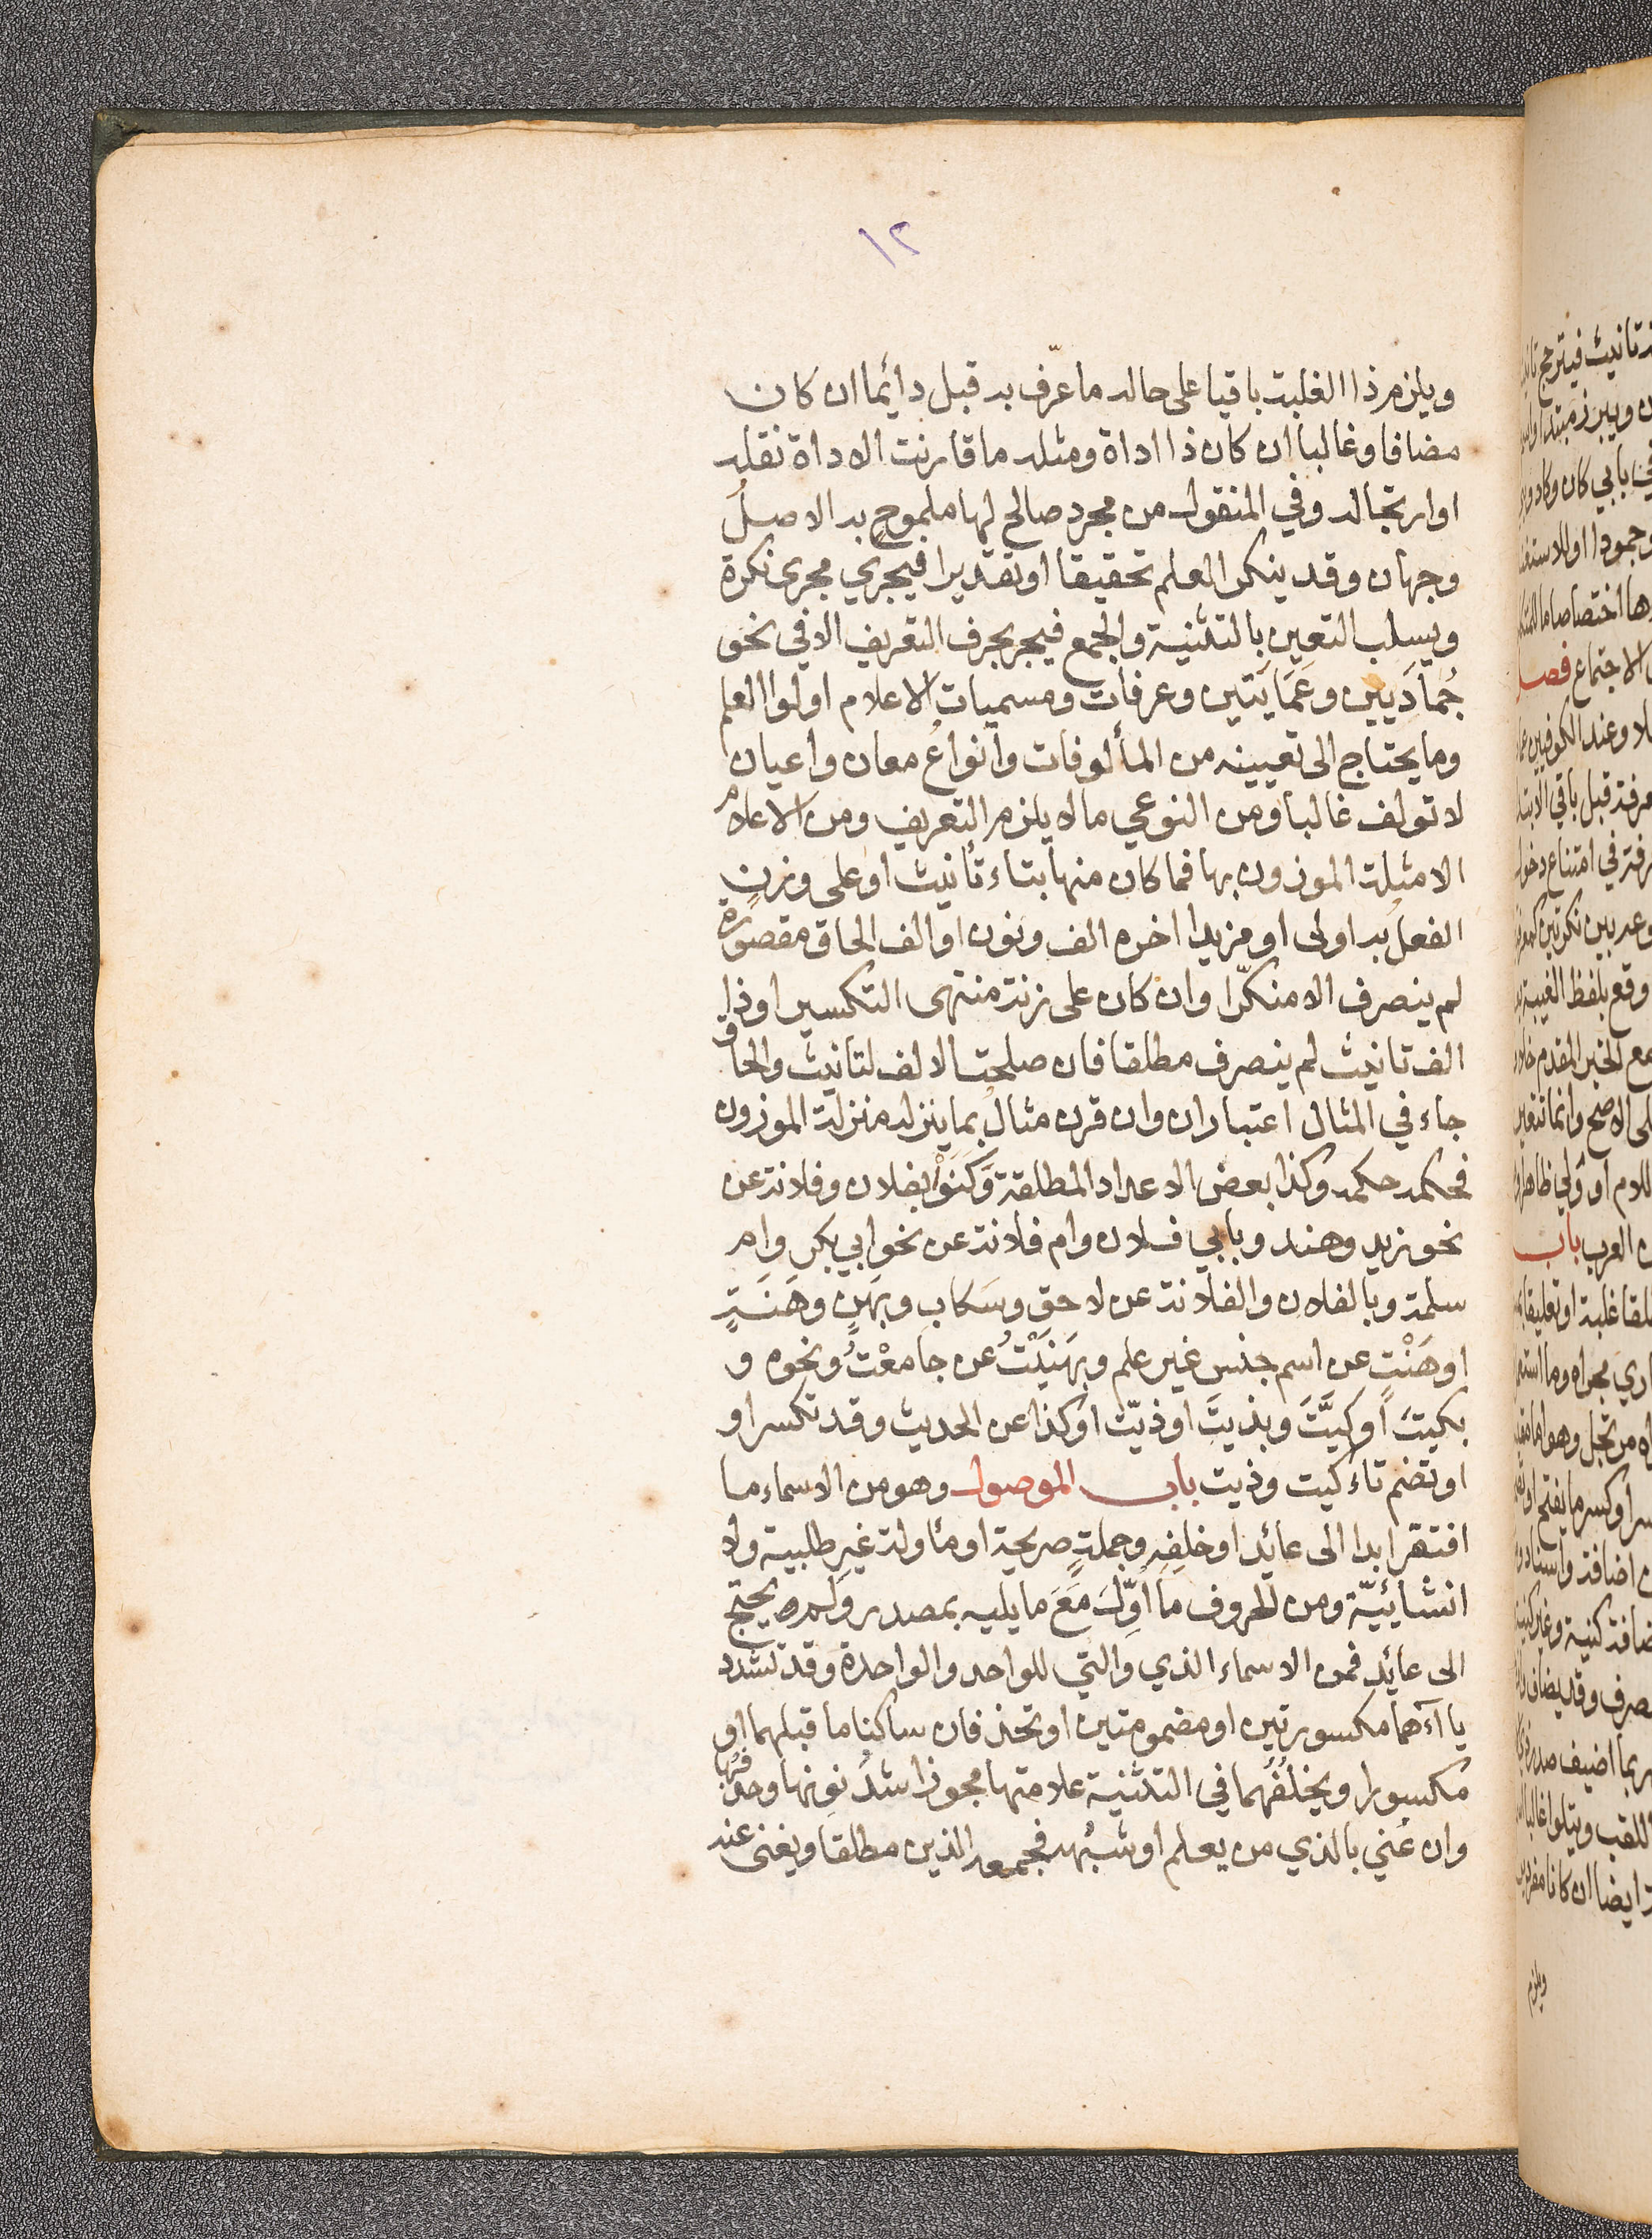 ١٢
ويلزم ذا الغلبة باقيا على حاله ما عرّف به قبل دائما ان كان
مضافا وغالبا ان كان ذا اداة ومثله ما قارنت الاداة نقله
او ارتجاله وفي المنقول من مجرد صالح لها ملموح به الاصل
وجهان وقد ينكر العلم تحقيقا او تقديرا فيجري مجرى نكرة
ويسلب التعيين بالتثنية والجمع فيجبر بحرف التعريف الا في نحو
جُمادَيين وعَمَايَتين وعرفات ومسميات الاعلام اولوا العلم
وما يحتاج الى تعيينه من المألوفات وانواعُ معان واعيان
لا تولف غالبا ومن النوعي ما لا يلزم التعريف ومن الاعلام
الامثلة الموزون بها فما كان منها بتاء تأنيث او على وزنٍ
الفعلُ به اولى او مزيدا اخره الف ونون او الف الحاق مقصورة
لم ينصرف الا منكّرا وان كان على زنة منتهى التكسير او ذا
الف تانيث لم ينصرف مطلقا فان صلحت الالف لتانيث والحاق
جاء في المثال اعتباران وان قرن مثالٌ بما ينزله منزلة الموزون
فحكمه حكمه وكذا بعض الاعداد المطلقة وَكَنَوْا بفلان وفلانة عن
نحو زيد وهند وبابي فلان وام فلانة عن نحو ابي بكر وام
سلمة وبالفلان والفلانة عن لاحقٍ وسَكاب وبهَنٍ وهَنَةٍ
او هَنْتٍ عن اسم جنس غير علم وبهَنَيْتُ عن جامعْتُ ونحوه و
بكيتَ او كيَّتَ وبذيتَ او ذيّت او كذا عن الحديث وقد تكسر او
او تضم تاء كيت وذيت باب الموصول وهو من الاسماء ما
افتقر ابدا الى عائد او خلفِه وجملةٍ صريحة او مئاولة غير طلبية ولا
انشائيّة ومن الحروف ما اُوِّلَ مَعَ ما يليه بمصدر وَلم يحتج
الى عائد فمن الاسماء الذي والتي للواحد والواحدة وقد تشدد
ياآءهما مكسورتين او مضمومتين او تحذفان ساكنا ما قبلهما او
مكسورا ويخلُفُهما في التثنية علامتها مجوزا شدُّ نونها وحذفُها
وان عُني بالذي من يعلم او شبهُه فجمعه الذين مطلقا ويغنى عنه